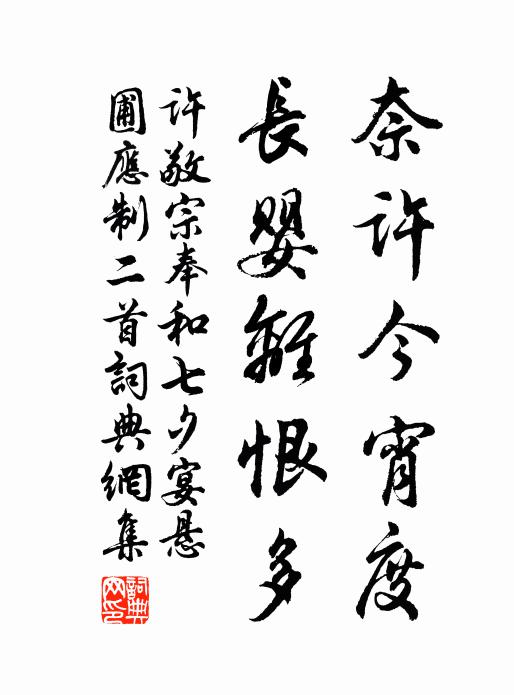 奈許今宵度
長嬰離恨多
許敬宗奉和七夕宴悬
圃應制二首詞典網集
詞典網印